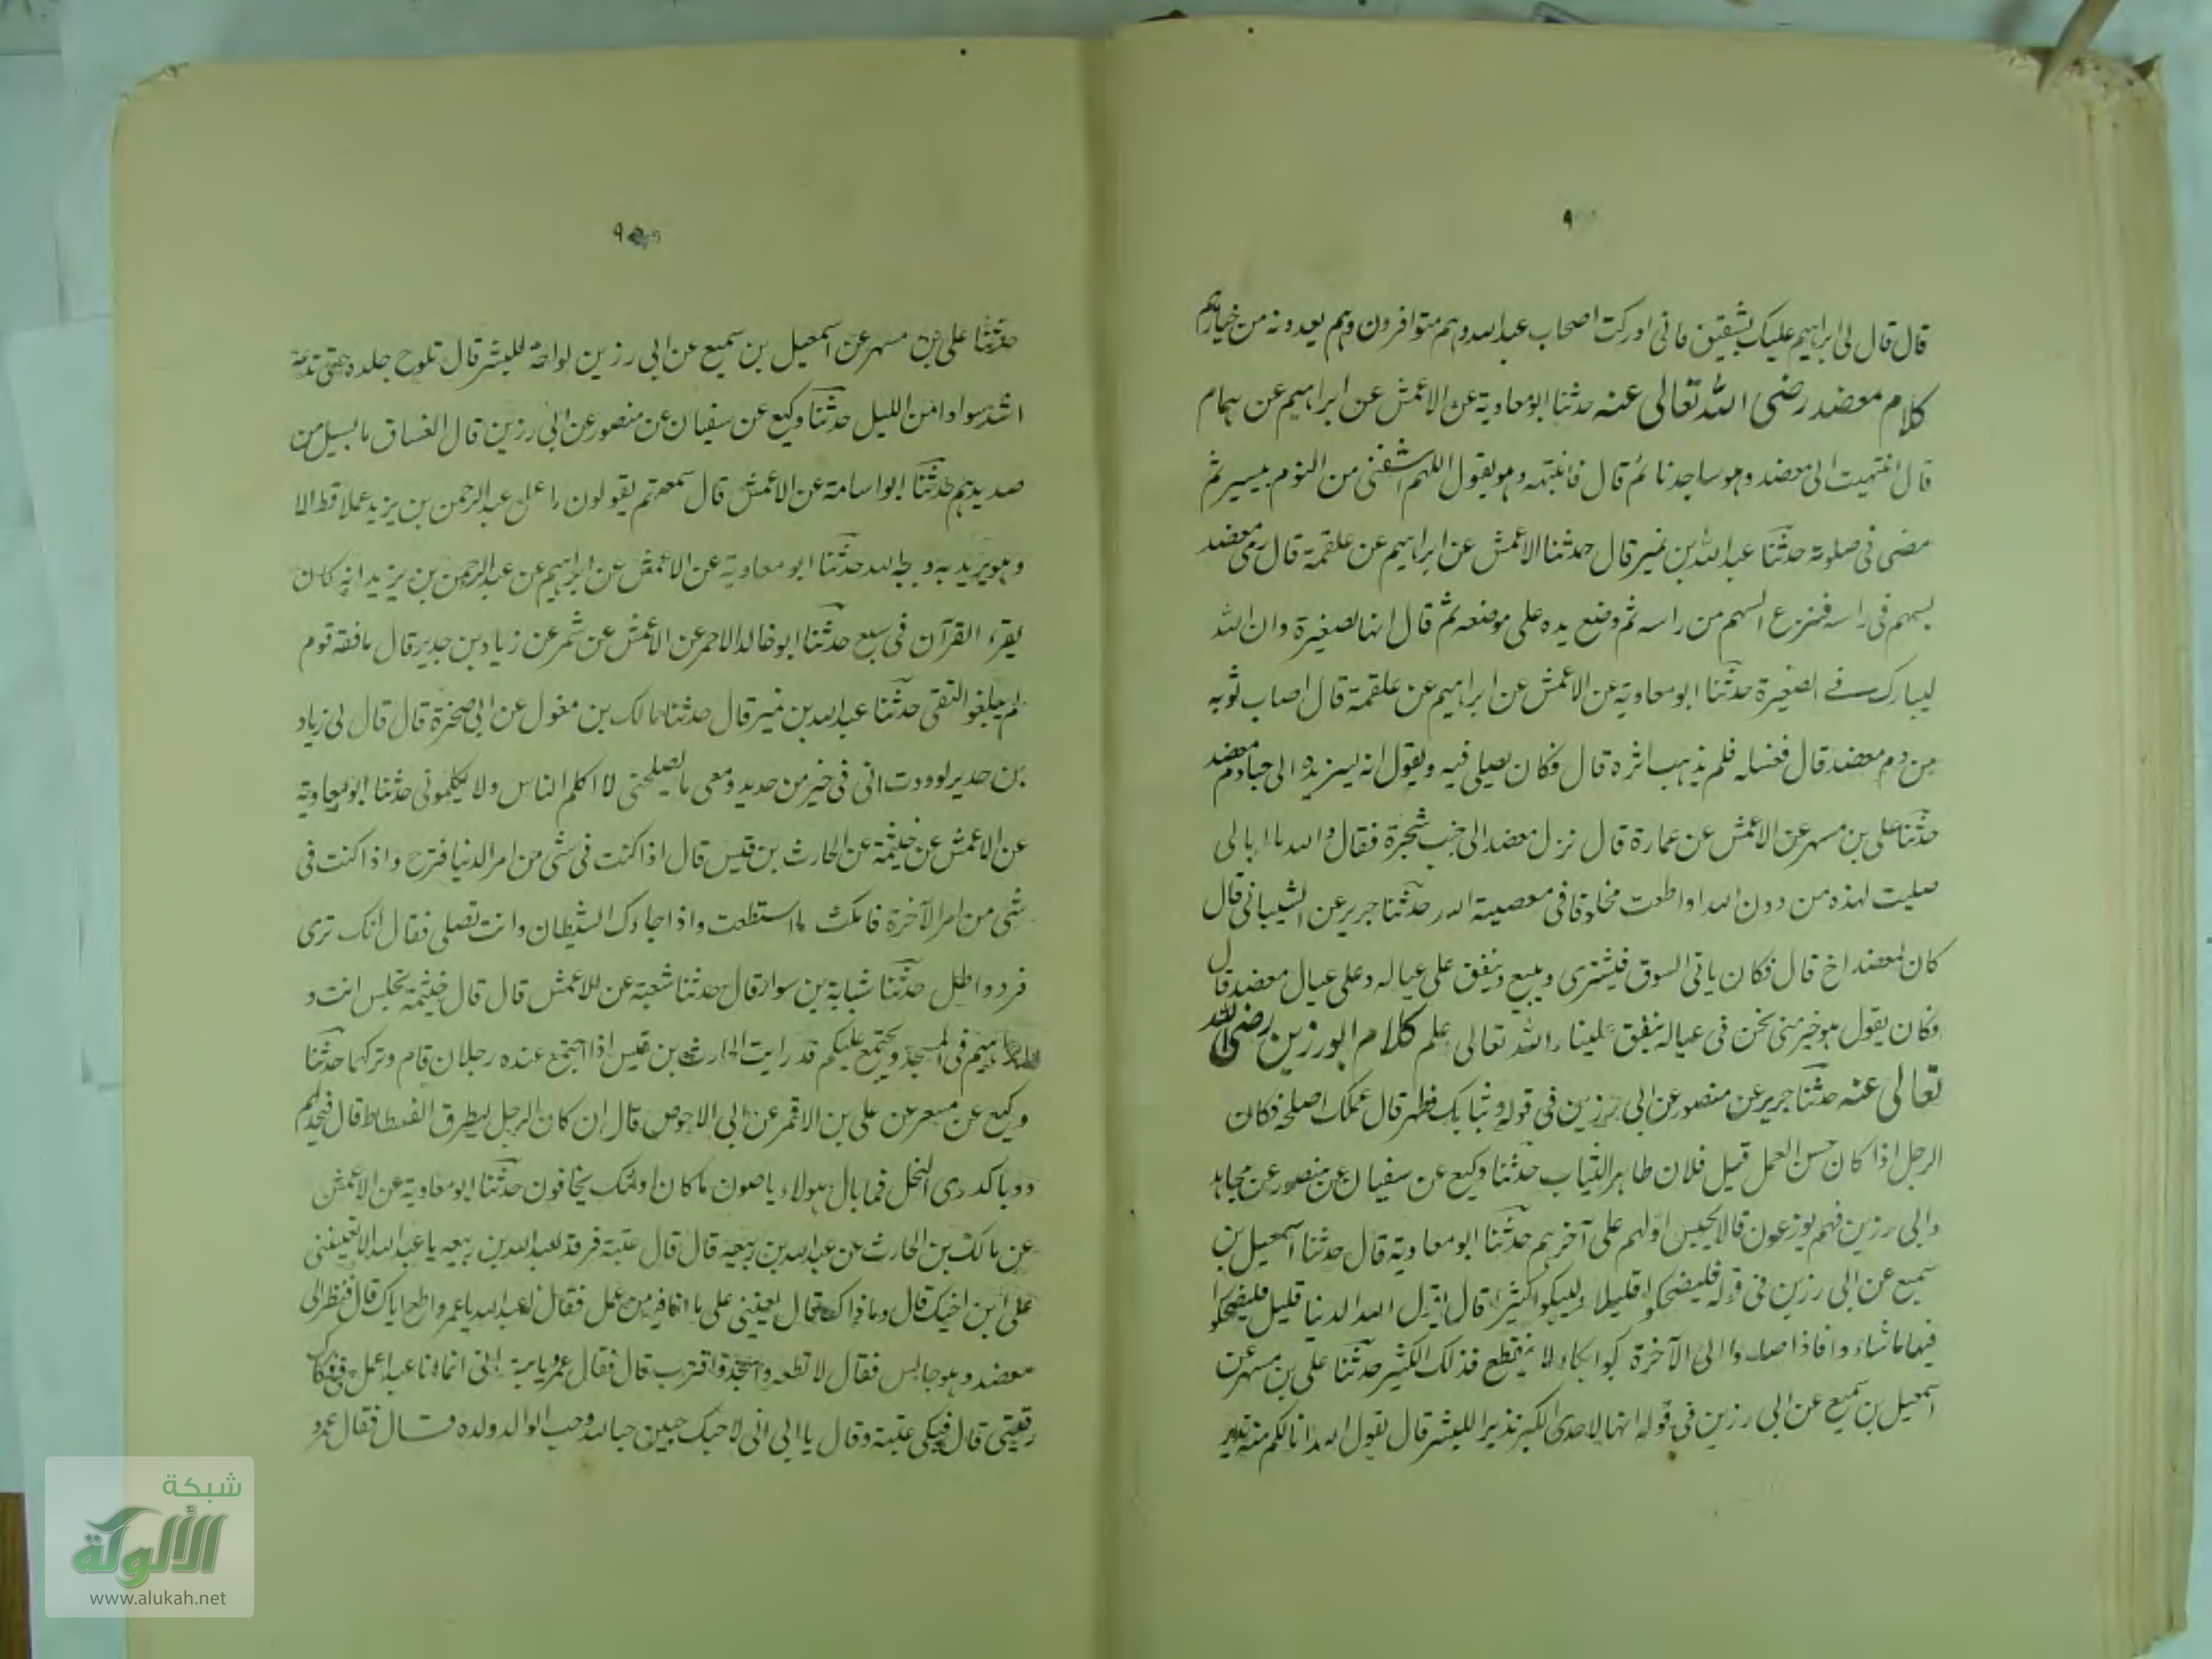 ٩
قال قال لى ابراهيم عليك بشقيق فانى ادركت اصحاب عبد الله وهم متوافرون وهم يعدونه من خيارهم
كلام معضد رضى الله تعالى عنه حدثنا ابو معاوية عن الاعمش عن ابراهيم عن همام
قال انتهيت الى معضد وهو ساجد نائم قال فانتبه وهو يقول اللهم اشفنى من النوم بيسير ثم
مضى فى صلوته حدثنا عبد الله بن نمير قال حدثنا الاعمش عن ابراهيم عن علقمة قال رمى معضد
بسهم فى راسه فنزع السهم من راسه ثم وضع يده على موضعه ثم قال انها لصغيرة وان الله
ليبارك فى الصغيرة حدثنا ابو معاوية عن الاعمش عن ابراهيم عن علقمة قال اصاب ثوبه
من دم معضد قال فغسله فلم يذهب اثره قال فكان يصلى فيه ويقول انه ليزيده الى حبا دم معضد
حدثنا على بن مسهر عن الاعمش عن عمارة قال نزل معضد الى جنب شجرة فقال والله ما ابالى
صليت لهذه من دون الله او اطعت مخلوقا فى معصية الله حدثنا جرير عن الشيبانى قال
كان لمعضد اخ قال فكان ياتى السوق فيشترى ويبيع وينفق على عياله وعلى عيال معضد قال
وكان يقول هو خير منى نحن فى عياله ينفق علينا والله تعالى علم كلام ابو رزين رضى الله
تعالى عنه حدثنا جرير عن منصور عن ابى رزين فى قوله وثيابك فطهر قال عملك اصلحه فكان
الرجل اذا كان حسن العمل قيل فلان طاهر الثياب حدثنا وكيع عن سفيان عن منصور عن مجاهد
وابى رزين فهم يوزعون قالا يحبس اولهم على آخرهم حدثنا ابو معاوية قال حدثنا اسمعيل بن
سميع عن ابى رزين فى قوله فليضحكوا قليلا وليبكوا كثيرا قال يقول الله الدنيا قليل فليضحكوا
فيها ما شاء وا فاذا صاروا الى الآخرة بكوا بكاء لا ينقطع فذلك الكثير حدثنا على بن مسهر عن
اسمعيل بن سميع عن ابى رزين فى قوله انها لاحدى الكبر نذيرا للبشر قال يقول الله انا لكم منها نذير
٩
حدثنا على بن مسهر عن اسمعيل بن سميع عن ابى رزين لواحة للبشر قال تلوح جلده حتى تدعه
اشد سوادا من الليل حدثنا وكيع عن سفيان عن منصور عن ابى رزين قال الغساق ما يسيل من
صديدهم حدثنا ابو اسامة عن الاعمش قال سمعتهم يقولون ما عمل عبد الرحمن بن يزيد عملا قط الا
وهو يريد به وجه الله حدثنا ابو معاوية عن الاعمش عن ابراهيم عن عبد الرحمن بن يزيد انه كان
يقرء القرآن فى سبع حدثنا ابو خالد الاحمر عن الاعمش عن شمر عن زياد بن حدير قال ما فقه قوم
لم يبلغوا التقى حدثنا عبد الله بن نمير قال حدثنا مالك بن مغول عن ابى صخرة قال قال لى زياد
بن حدير لوددت انى فى حيز من حديد ومعى ما يصلحنى لا اكلم الناس ولا يكلمونى حدثنا ابو معاوية
عن الاعمش عن خيثمة عن الحارث بن قيس قال اذا كنت فى شى من امر الدنيا فترح واذا كنت فى
شى من امر الآخرة فامكث ما استطعت واذا جاءك الشيطان وانت تصلى فقال انك ترى
فزد واطل حدثنا شبابة بن سوار قال حدثنا شعبة عن الاعمش قال قال خيثمة تجلس انت و
ابراهيم فى المسجد ويجتمع عليكم قد رايت الحارث بن قيس اذا اجتمع عنده رجلان قام وتركهما حدثنا
وكيع عن مسعر عن على بن الاقمر عن ابى الاحوص قال ان كان الرجل ليطرق الفسطاط قال فيجد لهم
دويا كدوى النحل فما بال هولاء يامنون ما كان اولئك يخافون حدثنا ابو معاوية عن الاعمش
عن مالك بن الحارث عن عبد الله بن ربيعه قال قال عتبة فرقد لعبد الله بن ربيعه يا عبد الله الا تعيننى
على ابن اخيك قال وما ذاك قال يعيننى على ما انا فيه من عمل فقال له عبد الله يا عمرو اطع اباك قال فنظر الى
معضد وهو جالس فقال لا تطعه واسجد واقترب قال فقال عمرو يا ابة انى انما انا عبد اعمل فى فكاك
رقبتى قال فبكى عتبة وقال يا ابى انى لاحبك حبين حبا لله وحب الوالد ولده قال فقال عمرو
شبكة
الألوكة
www.alukah.net